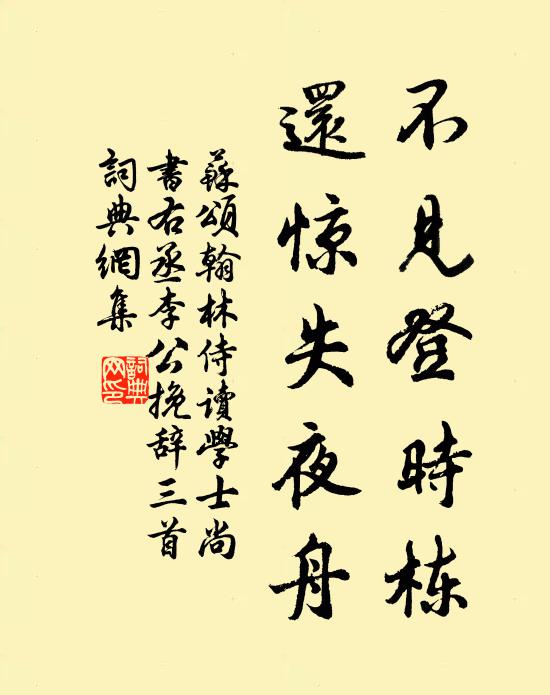 不見登時栋
還惊失夜舟
蘇頌翰林侍讀學士尚
書右丞李公挽辞三首
詞典網集
詞典
网印